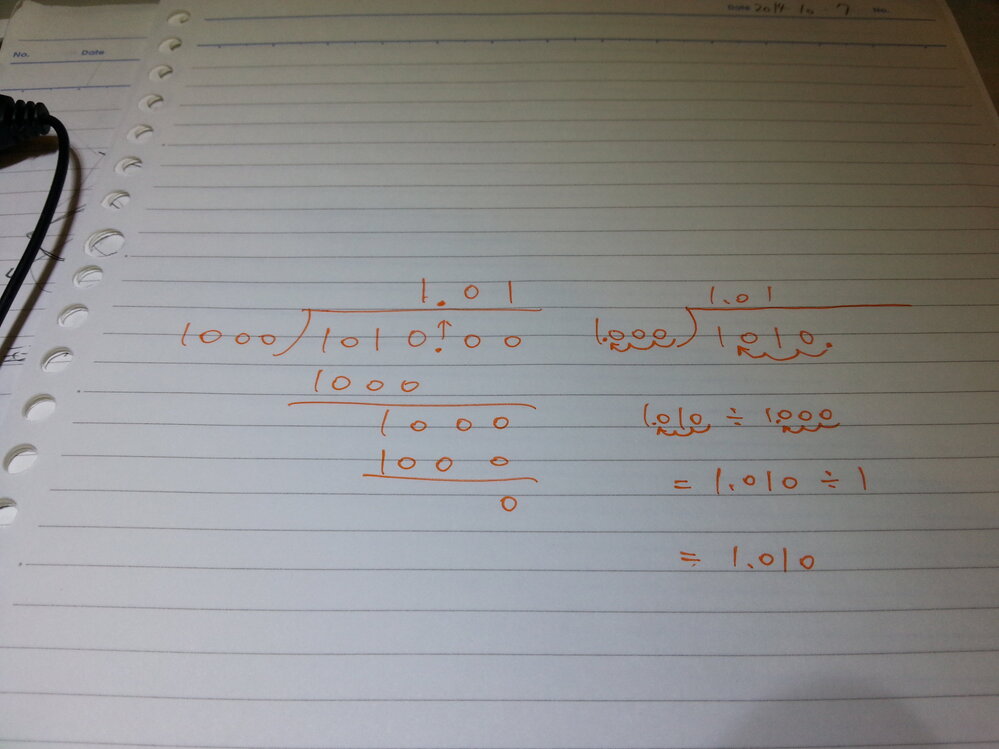 No. Date
Date 2014 10 7 No.
1.01
1000)1010.00
1000
1000
1000
0
1.01
1.000)1010.
1.010 ÷ 1.000
= 1.010 ÷ 1
= 1.010